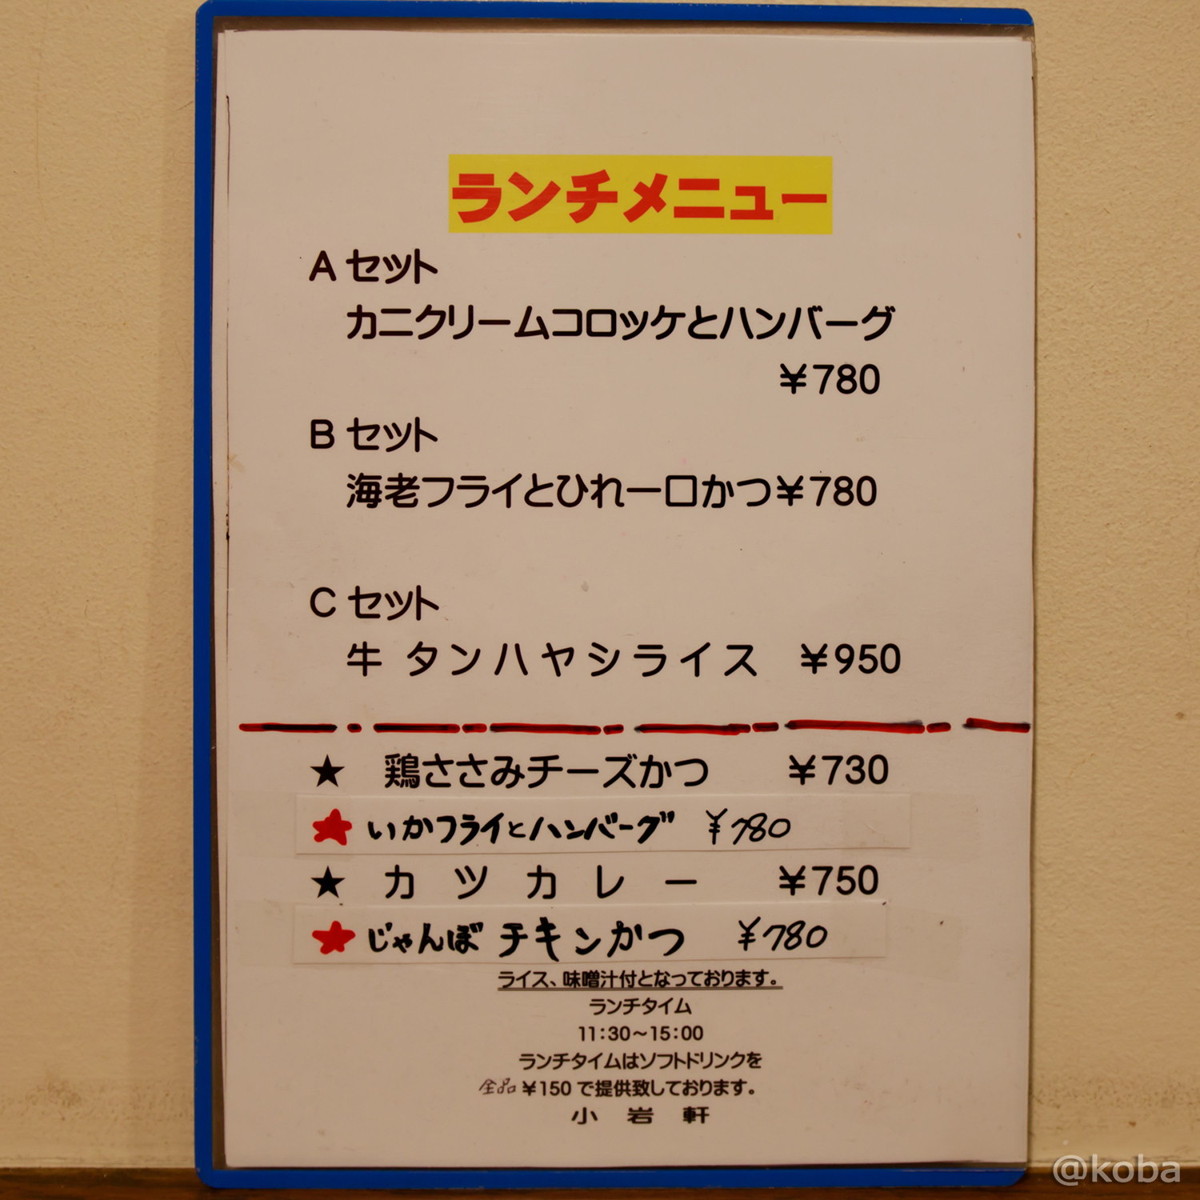 ランチメニュー
A セット
カニクリームコロッケとハンバーグ
¥780
B セット
海老フライとひれ一口かつ¥780
C セット
牛 タンハヤシライス ¥950
★ 鶏ささみチーズかつ ¥730
★ いかフライとハンバーグ ¥780
★ カツカレー ¥750
★ じゃんぼチキンかつ ¥780
ライス、味噌汁付となっております。
ランチタイム
11:30～15:00
ランチタイムはソフトドリンクを
全品 ¥150 で提供致しております。
小 岩 軒
@koba